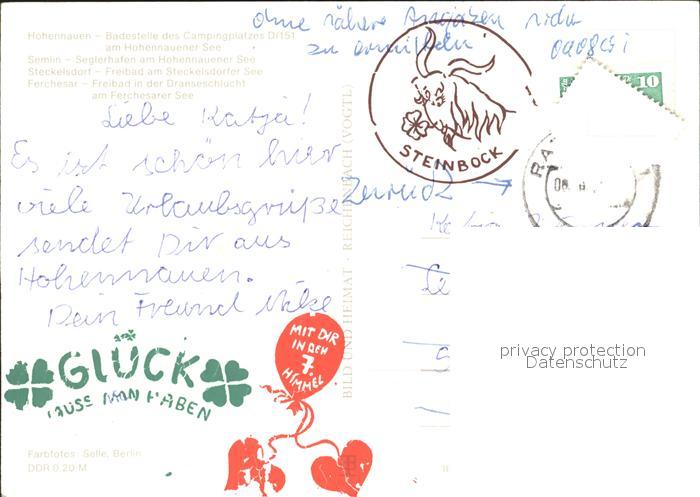 Hohennauen – Badestelle des Campingplatzes D/151
am Hohennauener See
Semlin – Seglerhafen am Hohennauener See
Steckelsdorf – Freibad am Steckelsdorfer See
Ferchesar – Freibad in der Dranseschlucht
am Ferchesarer See
Ohne nähere Angaben nicht
zu ermitteln
10
STEINBOCK
RA
Zurück
Liebe Katja!
Es ist schön hier
viele Urlaubsgrüße
sendet Dir aus
Hohennauen.
Dein Freund
BILD UND HEIMAT · REICHENBACH (VOGTL)
GLÜCK
MUSS MAN HABEN
MIT DIR
IN DEN
7.
HIMMEL
privacy protection
Datenschutz
Farbfotos: Selle, Berlin
DDR 0,20 M